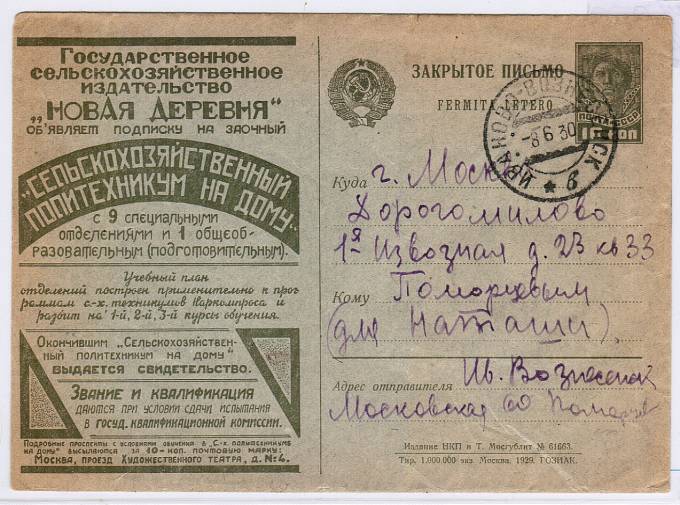 Государственное
сельскохозяйственное
издательство
„НОВАЯ ДЕРЕВНЯ"
ОБ'ЯВЛЯЕТ ПОДПИСКУ НА ЗАОЧНЫЙ
„СЕЛЬСКОХОЗЯЙСТВЕННЫЙ
ПОЛИТЕХНИКУМ НА ДОМУ"
С 9 СПЕЦИАЛЬНЫМИ
ОТДЕЛЕНИЯМИ И 1 ОБЩЕОБ-
РАЗОВАТЕЛЬНЫМ (ПОДГОТОВИТЕЛЬНЫМ).
Учебный план
отделений построен применительно к прог
раммам с.-х. техникумов Наркомпроса и
разбит на 1-й, 2-й, 3-й курсы обучения.
Окончившим „Сельскохозяйствен-
ный политехникум на дому"
ВЫДАЕТСЯ СВИДЕТЕЛЬСТВО.
Звание и квалификация
ДАЮТСЯ ПРИ УСЛОВИИ СДАЧИ ИСПЫТАНИЯ
В ГОСУД. КВАЛИФИКАЦИОННОЙ КОМИССИИ.
Подробные проспекты с условиями обучения в „С-х. политехникуме
на дому" высылаются за 10-коп. почтовую марку:
Москва, проезд Художественного театра, д. № 4.
ЗАКРЫТОЕ ПИСЬМО
FERMITA LETERO
ПОЧТА СССР
10 КОП
ИВАНОВО-ВОЗНЕСЕНСК
-8 6 30
★ в
Куда г. Москва
Дорогомилово
1я Извозная д. 23 кв 33
Кому Поморцевым
(для Наташи)
Адрес отправителя Ив. Вознесенск
Московская 60 Поморцев
Издание НКП и Т. Мосгублит № 61663.
Тир. 1.000.000 экз. Москва. 1929. ГОЗНАК.